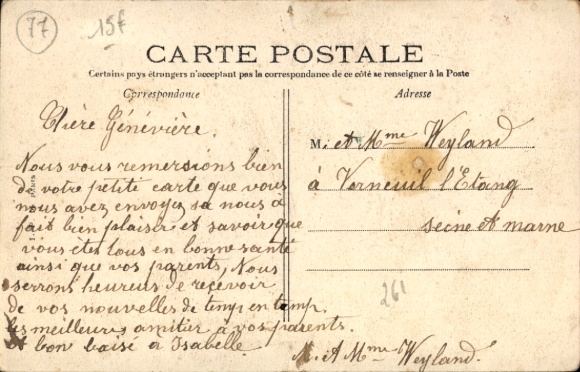 77
15f
CARTE POSTALE
Certains pays étrangers n'acceptant pas la correspondance de ce côté se renseigner à la Poste
Correspondance
Adresse
Chère Généviève.
Nous vous remersions bien
de votre petite carte que vous
nous avez envoyez sa nous a
fait bien plaisir et savoir que
vous êtes tous en bonne santé
ainsi que vos parents, Nous
serrons heureus de recevoir
de vos nouvelles de temp en temp.
les meilleures amitier à vos parents.
Et bon baisé a Isabelle.
M. et Mme Weyland
à Verneuil l'Etang
seine et marne
261
M. et Mme Weyland.